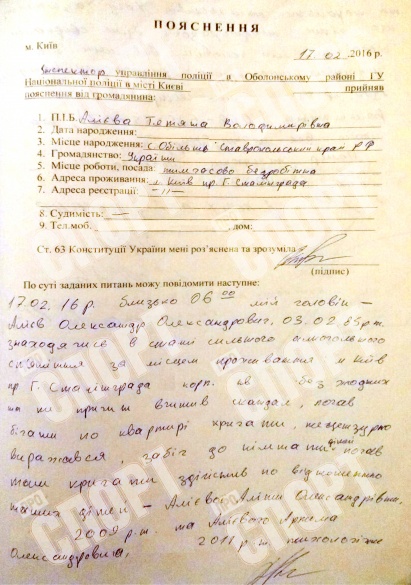 ПОЯСНЕННЯ
м. Київ
17.02 2016 р.
Інспектор управління поліції в Оболонському районі ГУ
Національної поліції в місті Києві прийняв
пояснення від громадянина:
1. П.І.Б. Алієва Тетяна Володимирівна
2. Дата народження:
3. Місце народження: с. Обільне Ставропольский край РФ
4. Громадянство: України
5. Місце роботи, посада: тимчасово безробітна
6. Адреса проживання: м. Київ пр. Г. Сталінграда
7. Адреса реєстрації: -//-
8. Судимість: —
9. Тел.моб. , дом:
Ст. 63 Конституції України мені роз'яснена та зрозуміла
(підпис)
По суті заданих питань можу повідомити наступне:
17.02.16 р. близько 06 00 мій головін –
Алієв Олександр Олександрович, 03.02.85 р.н.
знаходячись в стані сильного алкогольного
сп'яніння за місцем проживання м Київ
пр Г. Сталінграда корп. кв без жодних
на те причин вчинив скандал, почав
бігати по квартирі кричати, нецензурно
виражався забіг до кімнати дітей почав
там кричати здійснів по відношенню
наших дітей – Алієвої Аліни Олександрівна.
2009 р.н. та Алієвого Артема
Олександровича, 2011 р.н. психологічне
ПРО СПОРТ